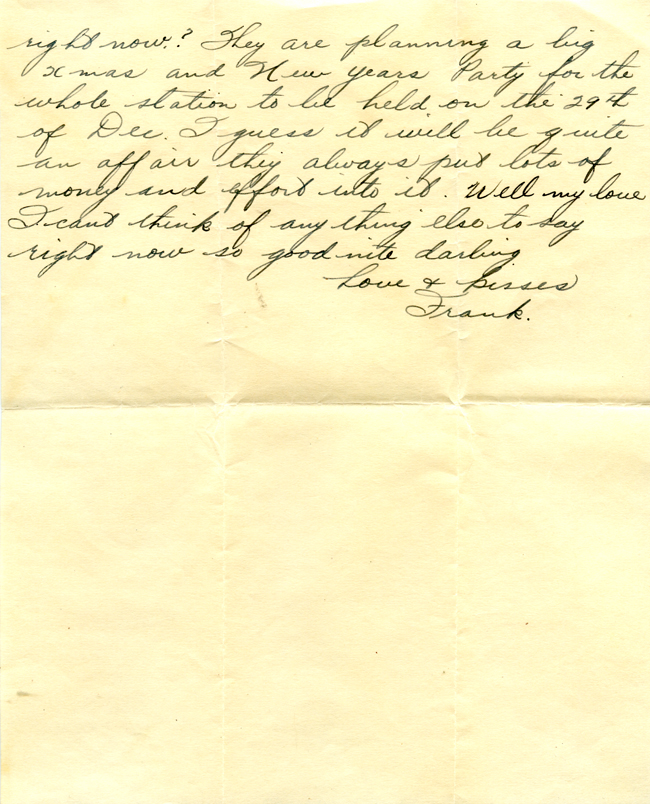 right now.? They are planning a big
xmas and New years Party for the
whole station to be held on the 29th
of Dec. I guess it will be quite
an affair they always put lots of
mony and effort into it. Well my love
I cant think of any thing else to say
right now so good nite darling
Love & kisses
Frank.